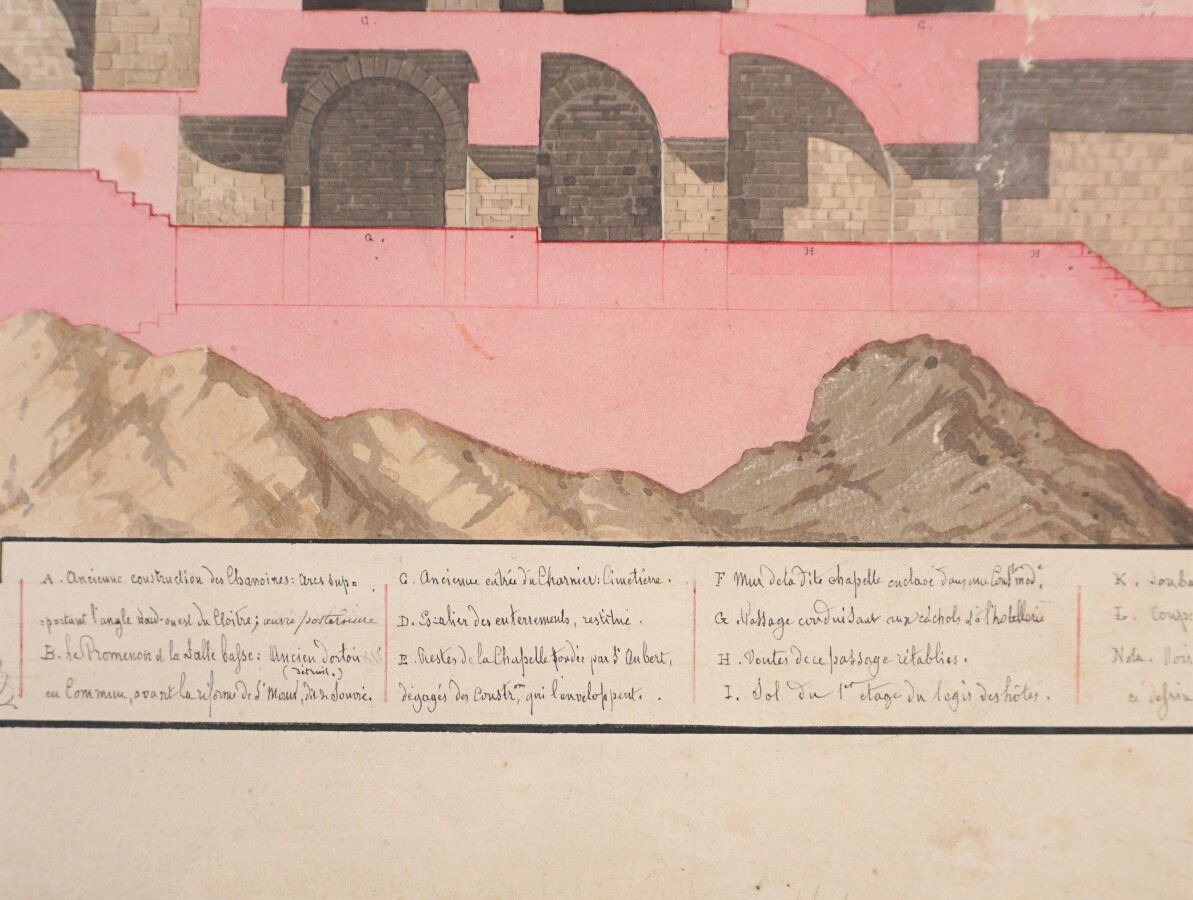 G.
G.
G.
H
H
A. Ancienne construction des Chanoines: arcs sup=
=portant l'angle sud-ouest du Cloître; œuvre postérieure
B. Le Promenoir et la Salle basse: Ancien dortoir
(détruit.)
en Commun, avant la réforme de St Maur, dit de Souvré.
C. Ancienne entrée du Charnier: Cimetière.
D. Escalier des enterrements, restitué.
E. Restes de la Chapelle fondée par St Aubert,
dégagés des Constr.ons qui l'enveloppent.
F Mur de la dite chapelle enclavé dans une Const.on mod.e
G. Passage conduisant aux cachots et à l'hotellerie
H. Voutes de ce passage rétablies.
I. Sol du 1er étage du logis des hôtes.
K. Souba
L. Coupe
Nota. Voir
ce dessin